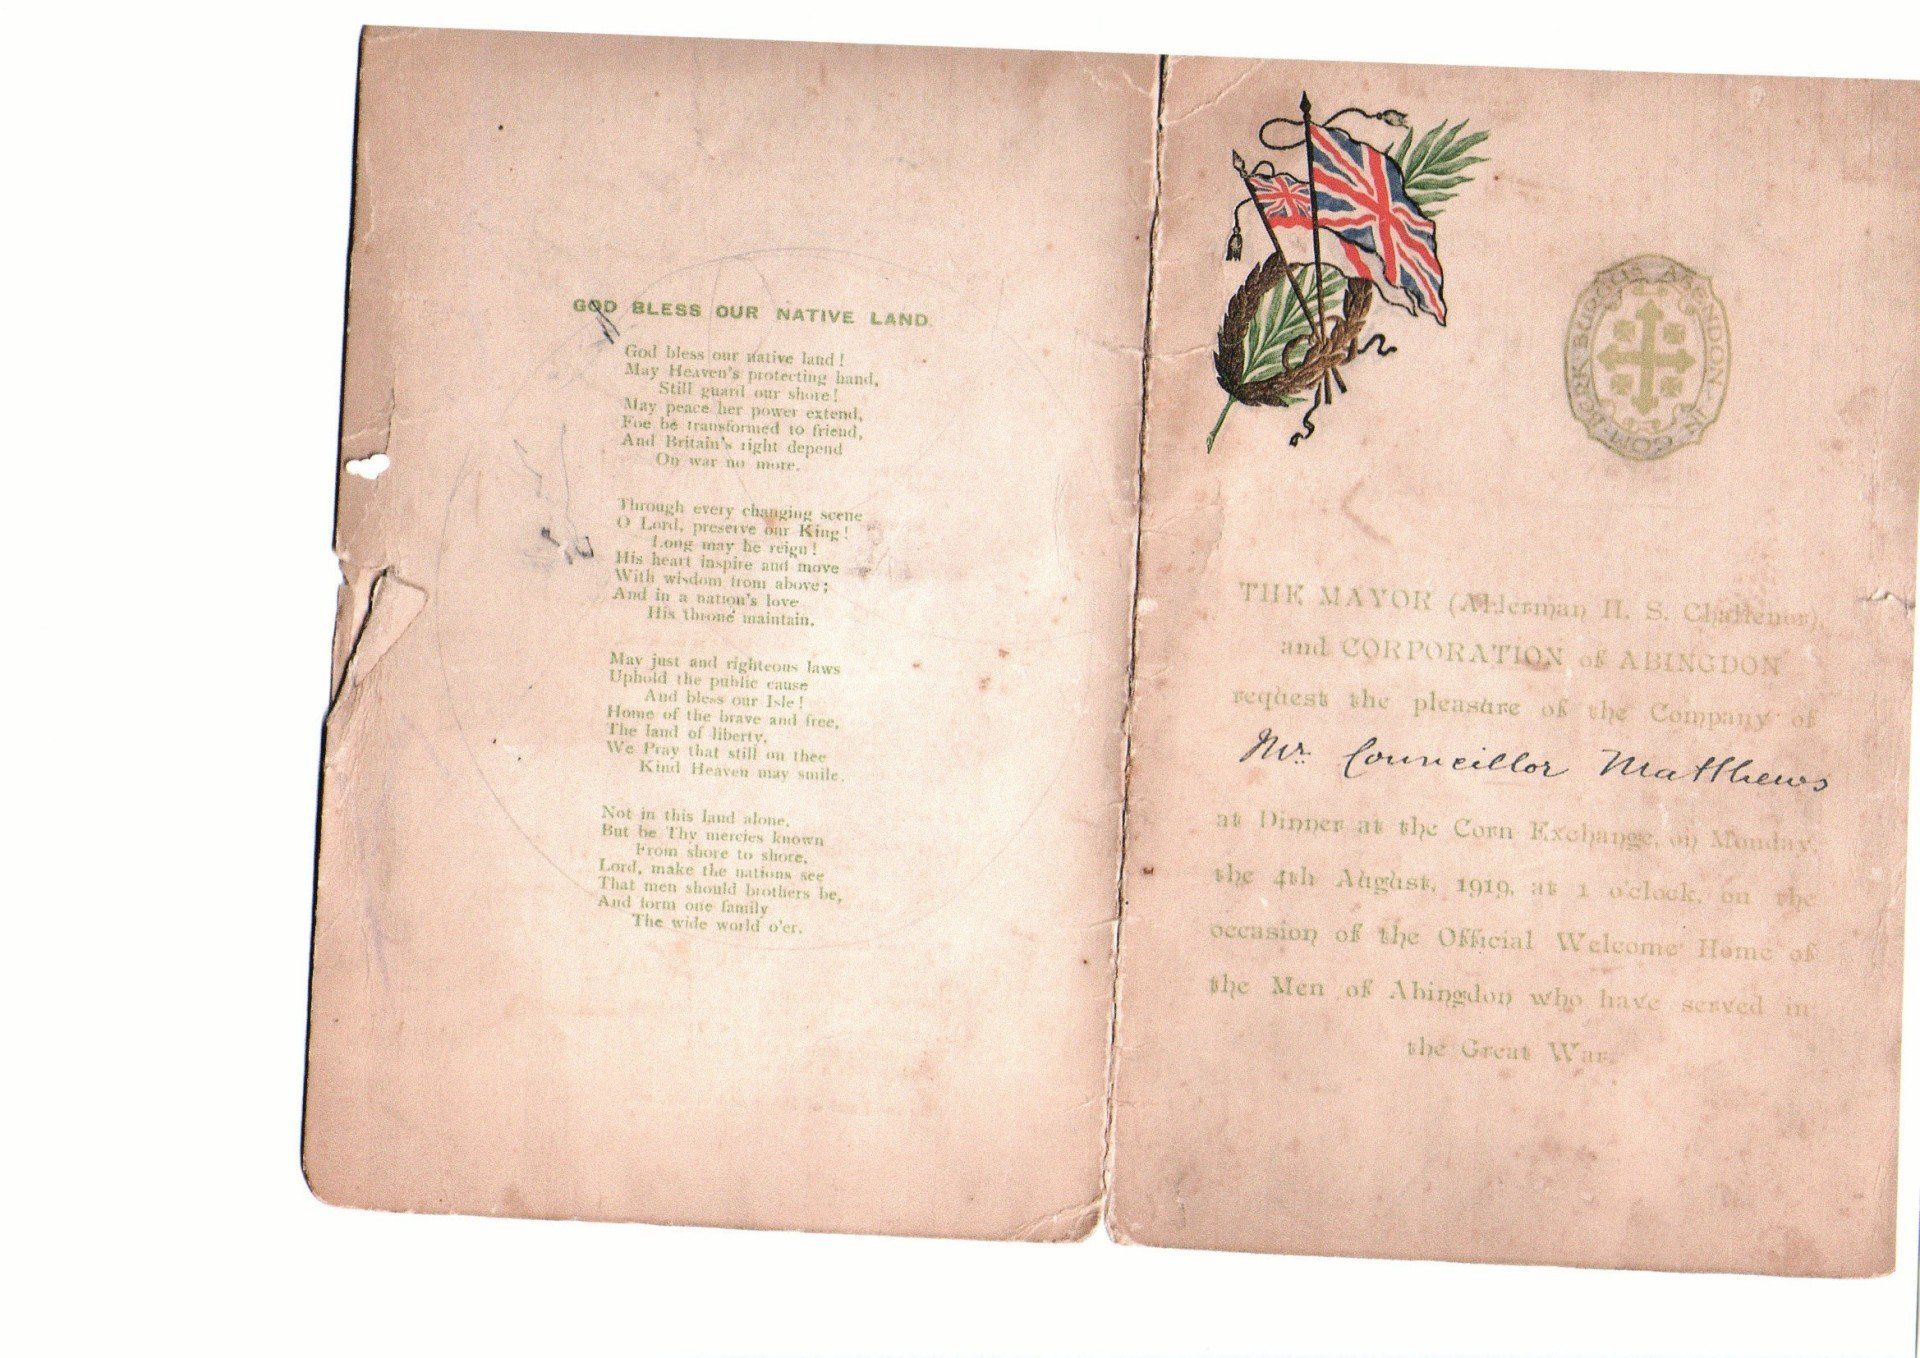 GOD BLESS OUR NATIVE LAND.
God bless our native land!
May Heaven's protecting hand,
Still guard our shore!
May peace her power extend,
Foe be transformed to friend,
And Britain's right depend
On war no more.
Through every changing scene
O Lord, preserve our King!
Long may he reign!
His heart inspire and move
With wisdom from above;
And in a nation's love
His throne maintain.
May just and righteous laws
Uphold the public cause
And bless our Isle!
Home of the brave and free,
The land of liberty,
We Pray that still on thee
Kind Heaven may smile.
Not in this land alone,
But be Thy mercies known
From shore to shore,
Lord, make the nations see
That men should brothers be,
And form one family
The wide world o'er.
BURGUS ABENDON IN
THE MAYOR (Alderman H. S. Challenor),
and CORPORATION of ABINGDON
request the pleasure of the Company of
Mr. Councillor Matthews
at Dinner at the Corn Exchange, on Monday,
the 4th August, 1919, at 1 o'clock, on the
occasion of the Official Welcome Home of
the Men of Abingdon who have served in
the Great War.